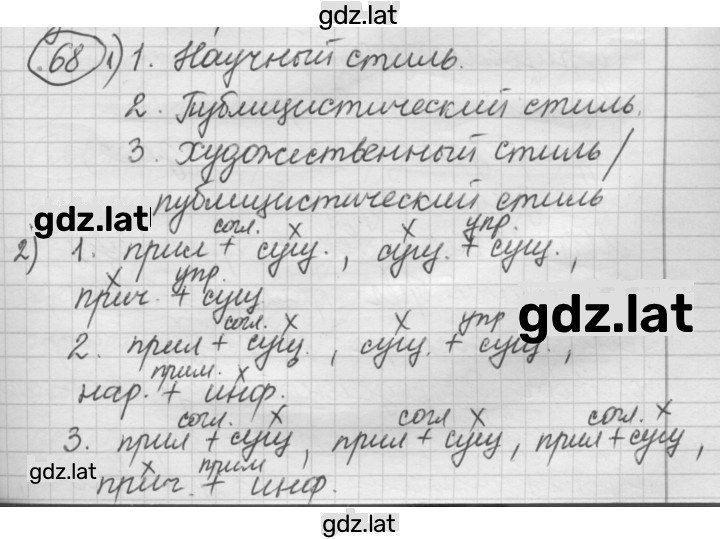 gdz.lat
68 1) 1. Научный стиль.
2. Публицистический стиль.
3. Художественный стиль/
публицистический стиль
gdz.lat
согл. х х упр.
2) 1. прил + сущ., сущ. + сущ.,
х упр.
прич. + сущ.
gdz.lat
согл. х х упр
2. прил + сущ., сущ. + сущ.,
прим. х
нар. + инф.
согл. х согл х согл. х
3. прил + сущ, прил + сущ, прил + сущ,
gdz.lat
х прим
прич. + инф.
gdz.lat